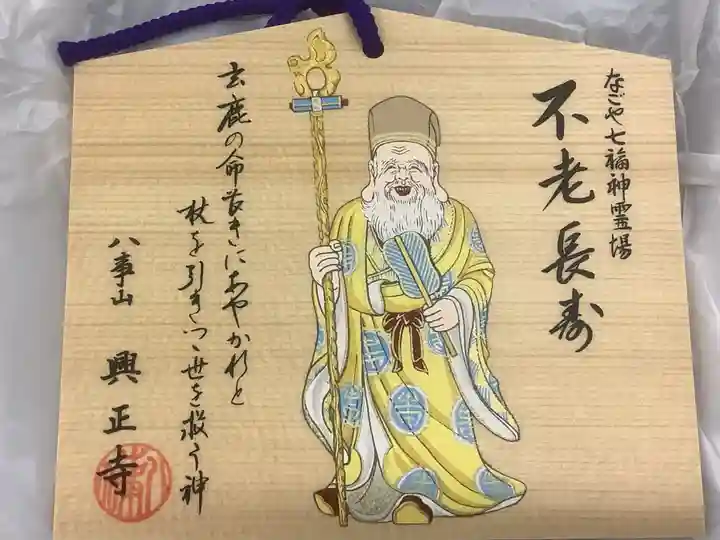 なごや七福神霊場
不老長寿
玄鹿の命長きにあやかれと
杖を引きつゝ世を救う神
八事山 興正寺